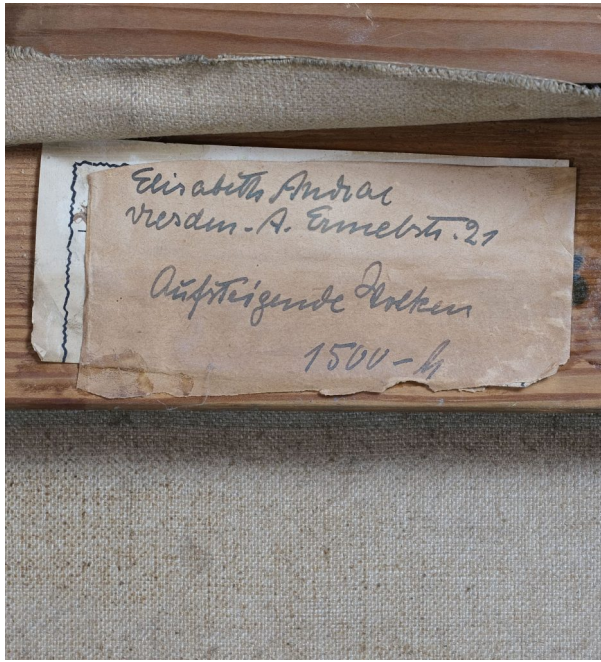 Elisabeth Andrae
Dresden-A. Ermelstr. 21
Aufsteigende Wolken
1500-M